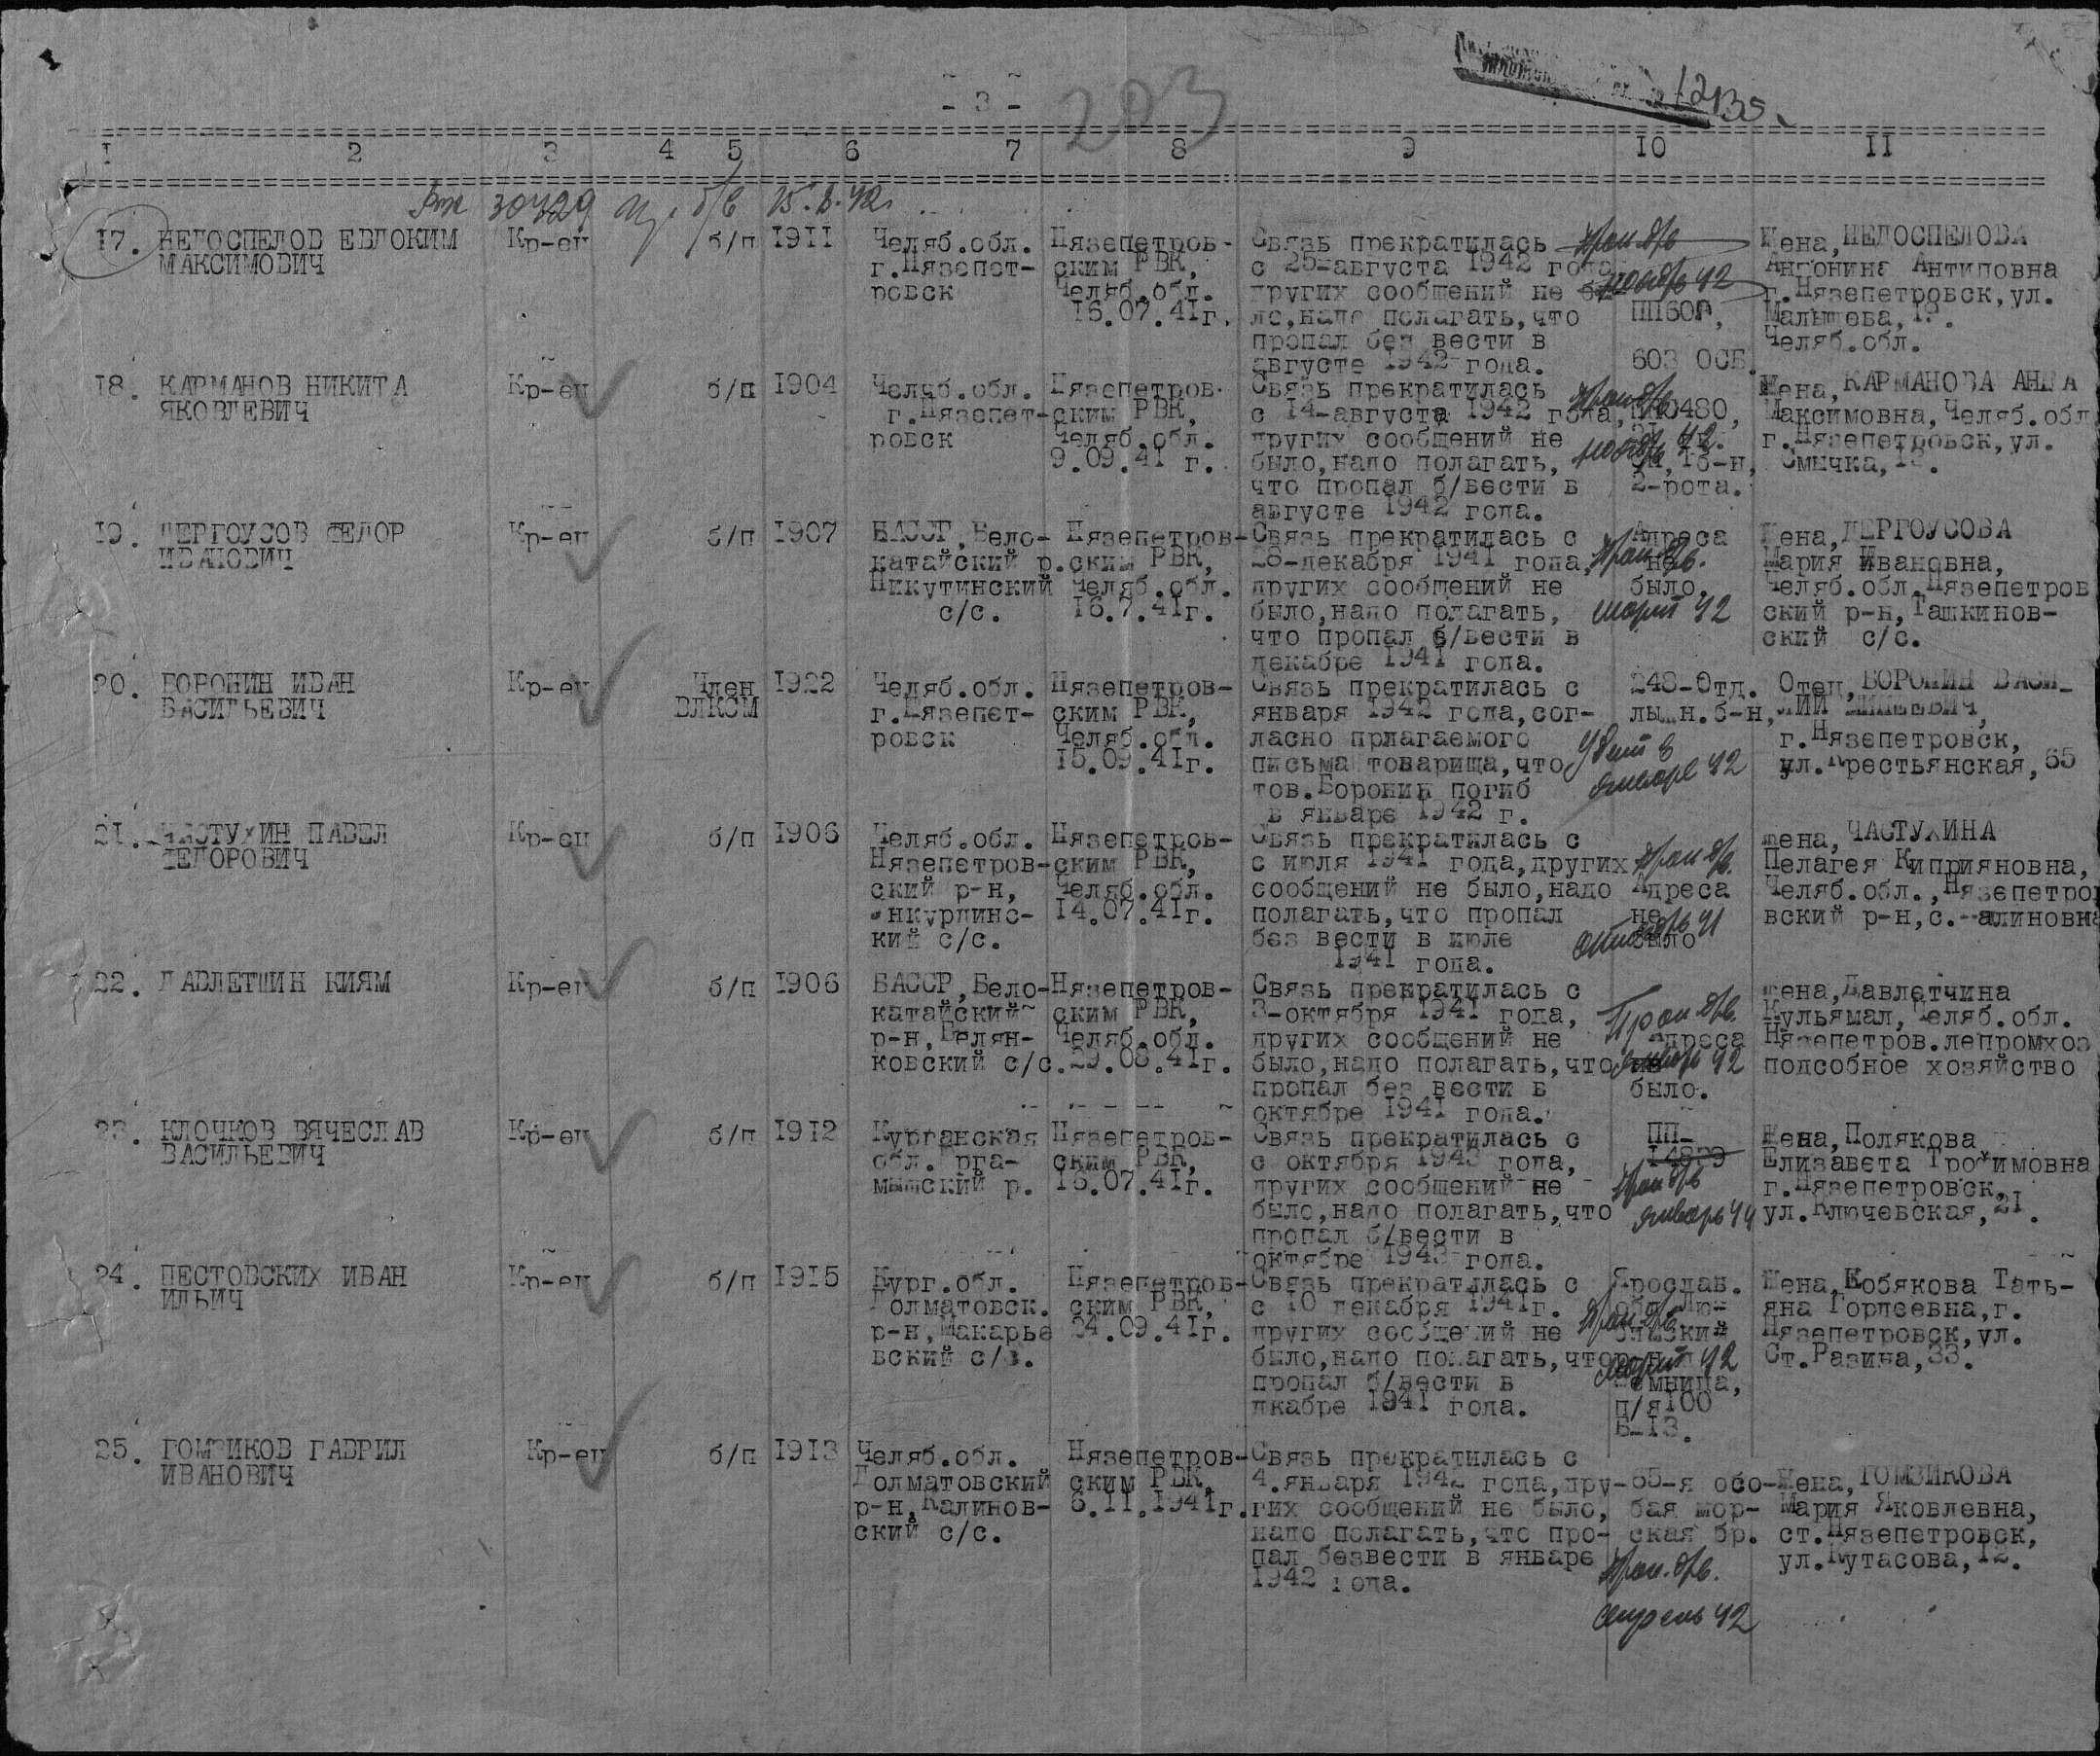 - 3 -
203
I 2 3 4 5 6 7 8 9 10 II
30429 б/в 15.8.42.
17. НЕДОСПЕЛОВ ЕВДОКИМ Кр-ец б/п 1911 Челяб.обл. Нязепетров- Связь прекратилась Проп б/в Жена, НЕДОСПЕЛОВА
МАКСИМОВИЧ г.Нязепет- ским РВК, с 25-августа 1942 года Антонина Антиповна
ровск Челяб.обл. других сообщений не бы- ноябрь 42 г.Нязепетровск,ул.
16.07.41г. ло,надо полагать,что Малышева,
пропал без вести в Челяб.обл.
августе 1942 года. 603 ОСБ.
18. КАРМАНОВ НИКИТА Кр-ец б/п 1904 Челяб.обл. Нязепетров- Связь прекратилась Проп б/в Жена, КАРМАНОВА АННА
ЯКОВЛЕВИЧ г.Нязепет- ским РВК, с 14-августа 1942 года, Максимовна,Челяб.обл
ровск Челяб.обл. других сообщений не г.Нязепетровск,ул.
9.09.41 г. было,надо полагать, ноябрь 42. 1б-н, Смычка,
что пропал б/вести в 2-рота.
августе 1942 года.
19. ДЕРГОУСОВ ФЕДОР Кр-ец б/п 1907 БАССР,Бело- Нязепетров- Связь прекратилась с Адреса Жена,ДЕРГОУСОВА
ИВАНОВИЧ катайский р. ским РВК, 28-декабря 1941 года, Проп б/в. не Мария Ивановна,
Никутинский Челяб.обл. других сообщений не было, Челяб.обл.Нязепетров
с/с. 16.7.41г. было,надо полагать, март 42 ский р-н,Ташкинов-
что пропал б/вести в ский с/с.
декабре 1941 года.
20. ВОРОНИН ИВАН Кр-ец Член 1922 Челяб.обл. Нязепетров- Связь прекратилась с 248-Отд. Отец,ВОРОНИН ВАСИ-
ВАСИЛЬЕВИЧ ВЛКСМ г.Нязепет- ским РВК, января 1942 года,сог- лыжн.б-н, ЛИЙ
ровск Челяб.обл. ласно прлагаемого г.Нязепетровск,
15.09.41г. письма товарища,что Убит в январе 42 ул.Крестьянская,65
тов.Воронин погиб
в январе 1942 г.
21. ЧАСТУХИН ПАВЕЛ Кр-ец б/п 1906 Челяб.обл. Нязепетров- Связь прекратилась с жена, ЧАСТУХИНА
ФЕДОРОВИЧ Нязепетров- ским РВК, с июля 1941 года,других Проп б/в. Пелагея Киприяновна,
ский р-н, Челяб.обл. сообщений не было,надо Адреса Челяб.обл.,Нязепетро
14.07.41г. полагать,что пропал не вский р-н,с.
кий с/с. без вести в июле октябрь 41 было
1941 года.
22. ДАВЛЕТШИН КИЯМ Кр-ец б/п 1906 БАССР,Бело- Нязепетров- Связь прекратилась с жена,Давлетчина
катайский ским РВК, 3-октября 1941 года, Проп б/в. Кульямал,Челяб.обл.
р-н,Белян- Челяб.обл. других сообщений не Адреса Нязепетров.лепромхоз
ковский с/с. 29.08.41г. было,надо полагать,что январь 42 подсобное хозяйство
пропал без вести в было.
октябре 1941 года.
23. КЛОЧКОВ ВЯЧЕСЛАВ Кр-ец б/п 1912 Курганская Нязепетров- Связь прекратилась с ПП- Жена,Полякова
ВАСИЛЬЕВИЧ обл. Юрга- ским РВК, с октября 1943 года, Елизавета Трофимовна
мышский р. 15.07.41г. других сообщений не Проп б/в г.Нязепетровск,
было,надо полагать,что январь 44 ул.Ключевская,21.
пропал б/вести в
октябре 1943 года.
24. ПЕСТОВСКИХ ИВАН Кр-ец б/п 1915 Кург.обл. Нязепетров- Связь прекратилась с Ярослав. Жена,Кобякова Тать-
ИЛЬИЧ Долматовск. ским РВК, с 10 декабря 1941г. Проп б/в яна Гордеевна,г.
р-н,Макарье 24.09.41г. других сообщений не Нязепетровск,ул.
вский с/с. было,надо полагать,что март 42 Ст.Разина,33.
пропал б/вести в
дкабре 1941 года. п/я100
Б-13.
25. ГОМЗИКОВ ГАВРИЛ Кр-ец б/п 1913 Челяб.обл. Нязепетров- Связь прекратилась с
ИВАНОВИЧ Долматовский ским РВК, 4.января 1942 года,дру- 65-я осо- Жена,ГОМЗИКОВА
р-н,Калинов- 6.11.1941г. гих сообщений не было, бая мор- Мария Яковлевна,
ский с/с. надо полагать,что про- ская бр. ст.Нязепетровск,
пал безвести в январе Проп. б/в. ул.Кутасова,12.
1942 года.
апрель 42